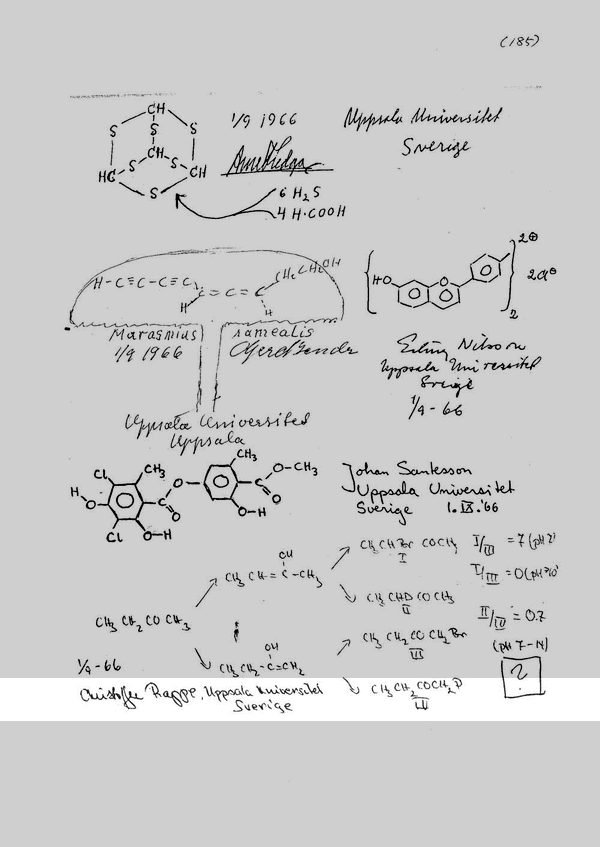 (185)
CH
S S
S
CH
S S
HC CH
S
1/9 1966
Uppsala Universitet
Sverige
6 H2S
4 H·COOH
H-C≡C-C≡C
C=C=C
H H
Marasmius ramealis
1/9 1966
Uppsala Universitet
Uppsala
HO
O
2⊕
2Cl⊖
2
Erling Nilsson
Uppsala Universitet
Sverige
1/9-66
Cl CH3
H O
Cl O-H
C O
O
CH3
C O-CH3
O
O-H
Johan Santesson
Uppsala Universitet
Sverige 1.IX.'66
CH3 CH2 CO CH3
OH
CH3 CH=C-CH3
OH
CH3CH2-C=CH2
CH3 CHBr COCH3
I
CH3 CHD CO CH3
II
CH3 CH2 CO CH2 Br
III
CH3CH2COCH2D
I/III = 7
I/III = 0
= 0.7
(pH 7-14)
?
1/9-66
Christoffer Rappe, Uppsala Universitet
Sverige